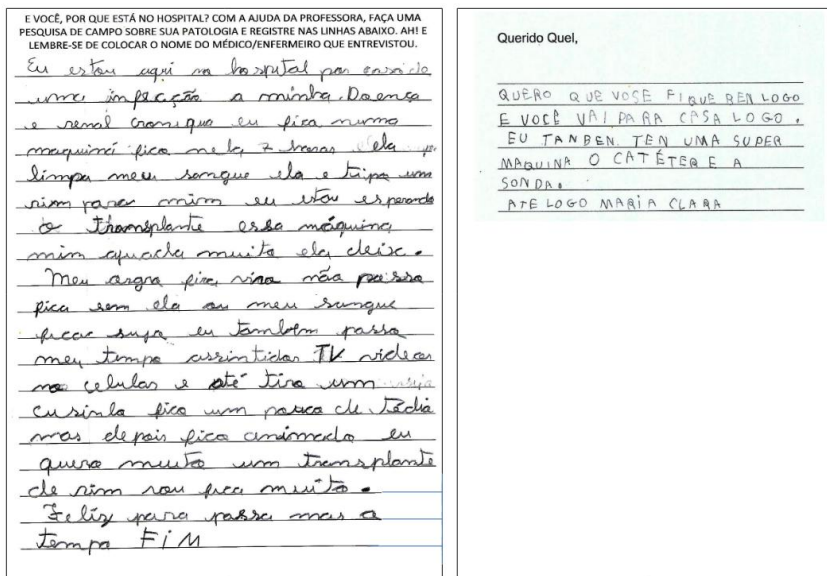 E VOCÊ, POR QUE ESTÁ NO HOSPITAL? COM A AJUDA DA PROFESSORA, FAÇA UMA
PESQUISA DE CAMPO SOBRE SUA PATOLOGIA E REGISTRE NAS LINHAS ABAIXO. AH! E
LEMBRE-SE DE COLOCAR O NOME DO MÉDICO/ENFERMEIRO QUE ENTREVISTOU.
Eu estou aqui no hospital por
uma infecção a minha Doença
e renal fica numa
fica nela 7 horas ela
limpa meu sangue ela e tipo um
rim para mim eu estou esperando
o transplante essa máquina
mim muito ela deixe.
Meu não passo
fica sem ela ou meu sangue
ficar suja eu também passo
meu tempo TV videos
no celular e até tiro um
fico um pouco de tédio
mas depois fico animado eu
quero muito um transplante
de rim vou fica muito.
Feliz para passa mas o
tempo FiM
Querido Quel,
QUERO QUE VOSE FIQUE BEN LOGO
E VOCÊ VAI PARA CASA LOGO.
EU TANBEN TEN UMA SUPER
MAQUINA O CATÉTER E A
SONDA.
ATE LOGO MARiA CLARA